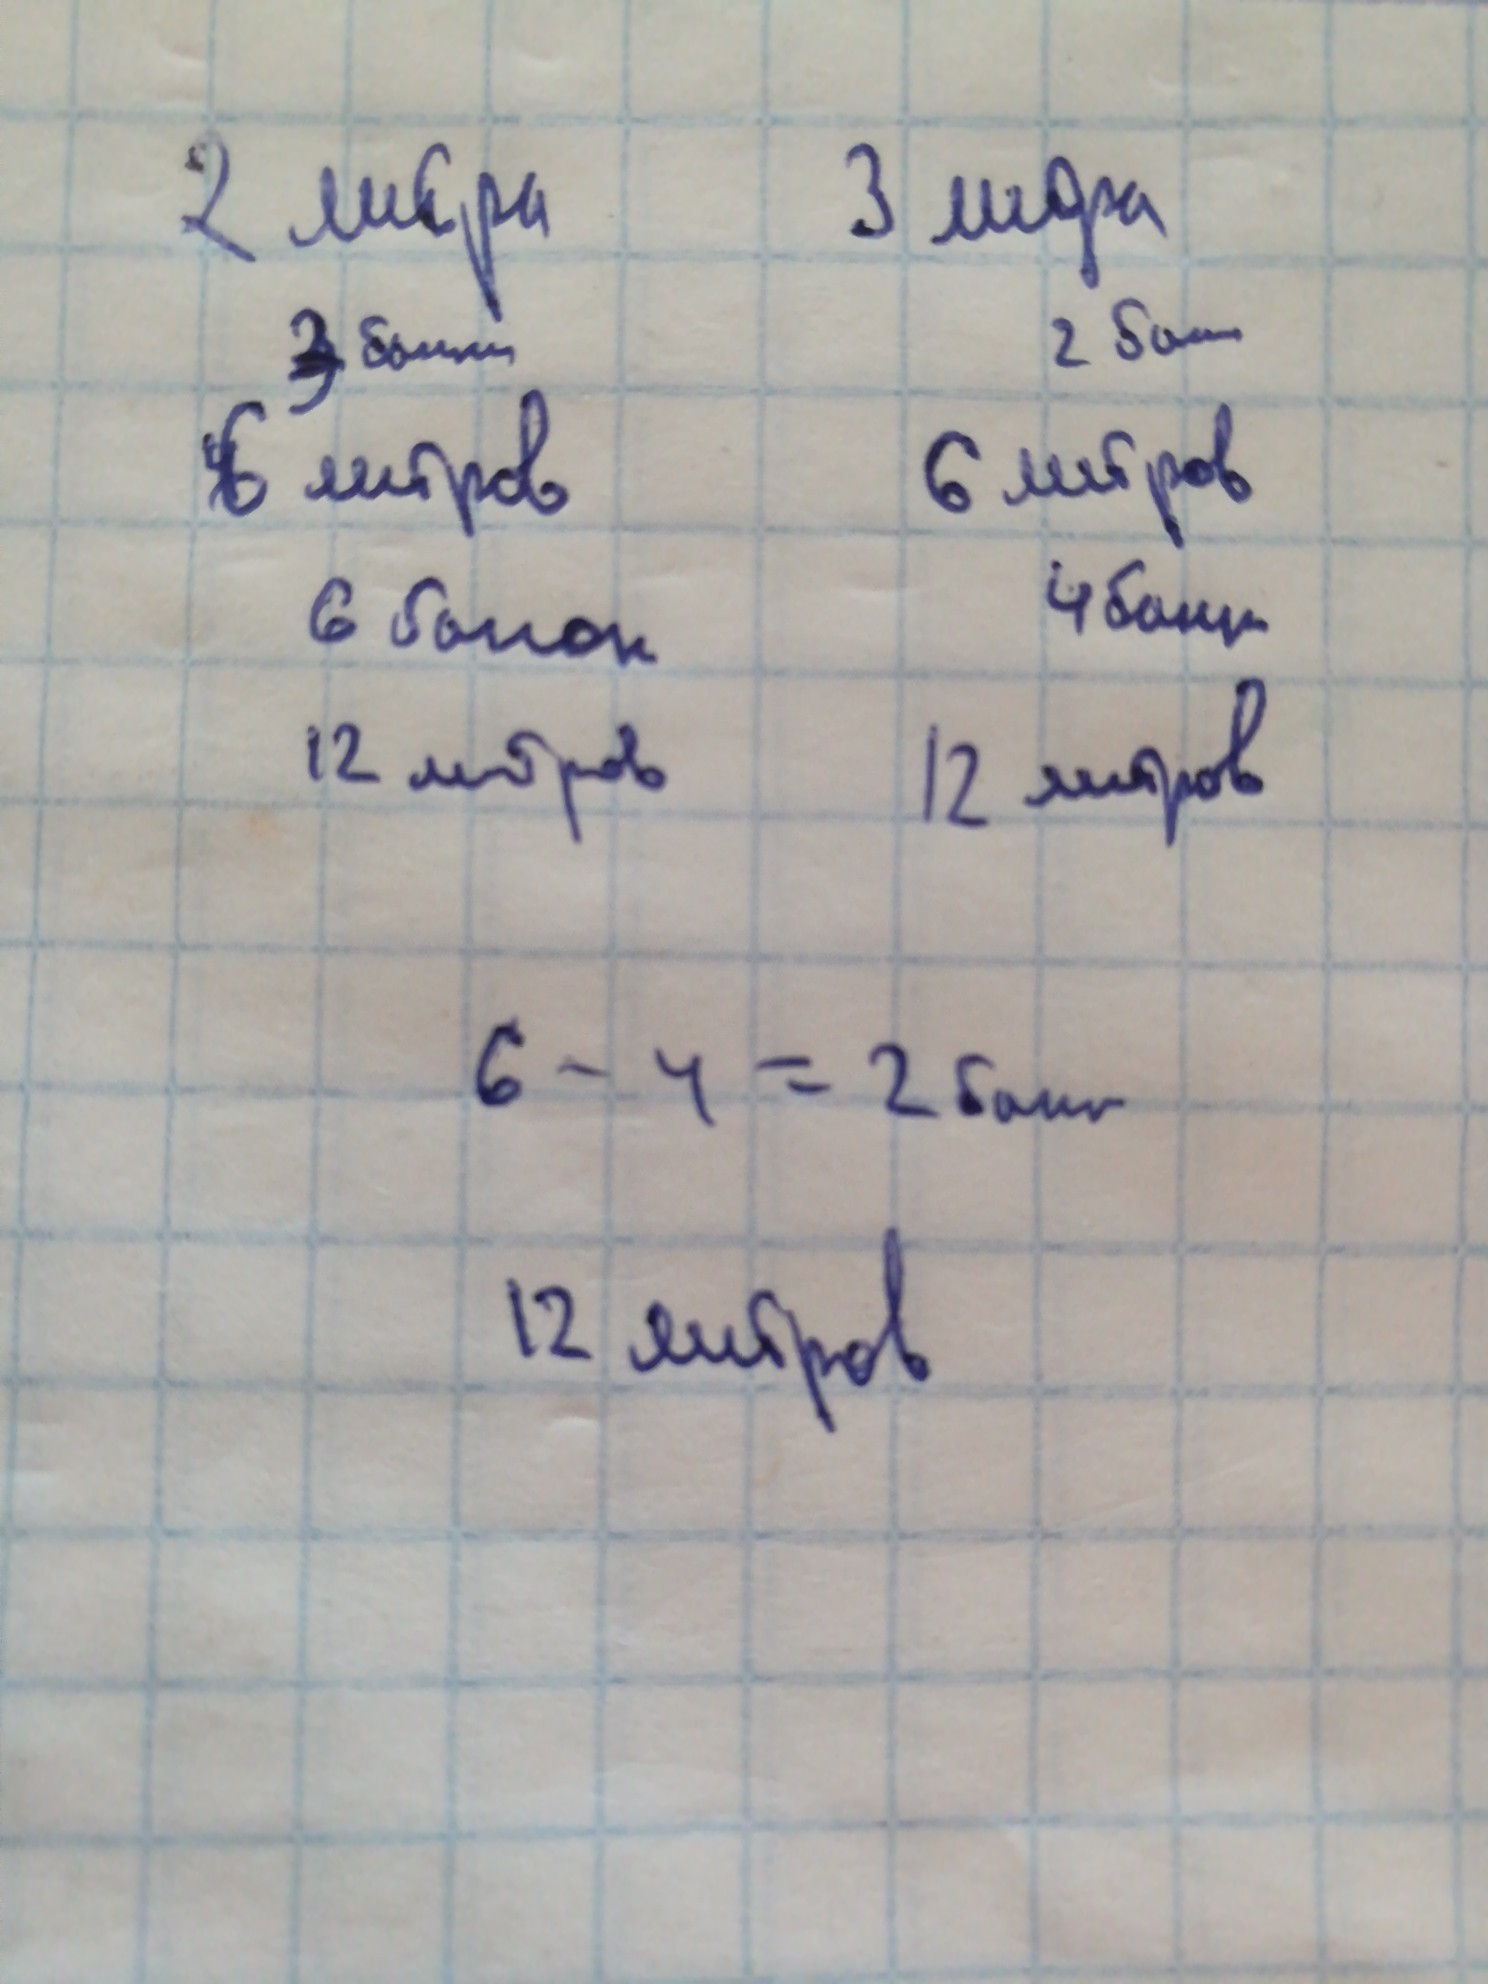 2 литра 3 литра
3 банки 2 бан
6 литров 6 литров
6 банок 4 банки
12 литров 12 литров
6 - 4 = 2 банк
12 литров